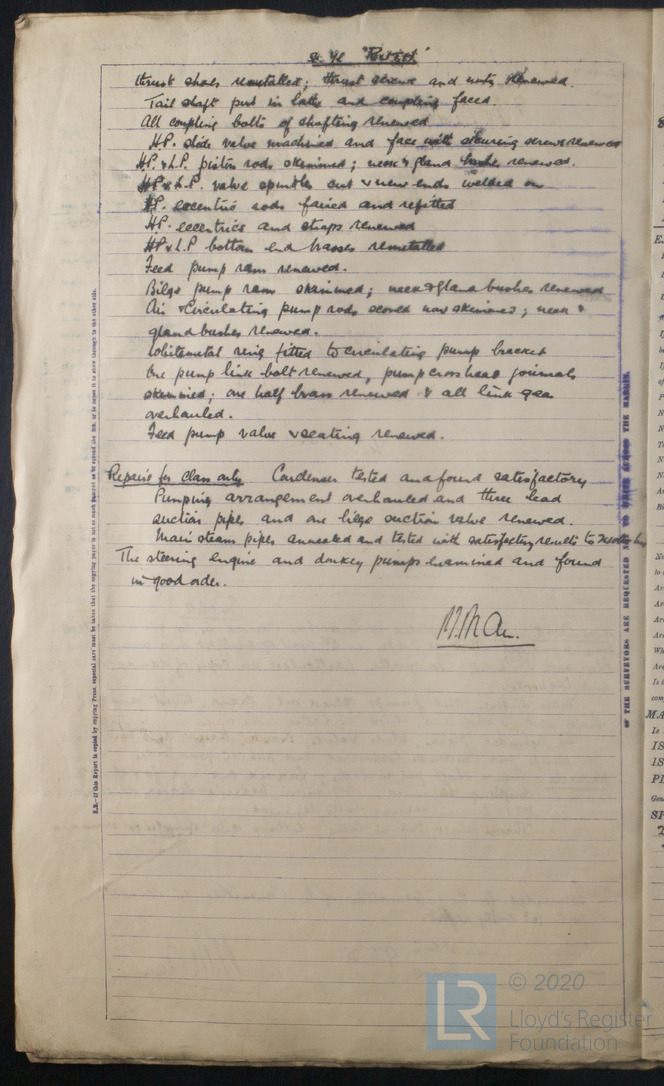 thrust shoes remetalled; thrust screws and nuts renewed.
Tail shaft put in lathe and coupling faced.
All coupling bolts of shafting renewed
HP. slide valve machined and face with securing screws renewed
HP. & L.P. piston rods skimmed; neck & gland bushes renewed.
HP & L.P. valve spindles cut & new ends welded on
HP. eccentric rods faired and refitted
HP. eccentrics and straps renewed
HP & L.P bottom end brasses remetalled
Feed pump ram renewed.
Bilge pump ram skimmed; neck & gland bushes renewed
Air & circulating pump rods scored now skimmed; neck &
gland bushes renewed.
Whitemetal ring fitted to circulating pump bracket
One pump link bolt renewed, pump crosshead journals
skimmed; one half brass renewed & all link gear
overhauled.
Feed pump valve & seating renewed.
Repairs for class only Condenser tested and found satisfactory
Pumping arrangement overhauled and three lead
suction pipes and one bilge suction valve renewed.
Main steam pipes annealed and tested with satisfactory results to
The steering engine and donkey pumps examined and found
in good order.
N.B.—If this Report is copied by copying Press, especial care must be taken that the
OF THE SURVEYORS ARE REQUESTED NOT TO WRITE ACROSS THE MARGIN.
LR
© 2020
Lloyd's Register
Foundation